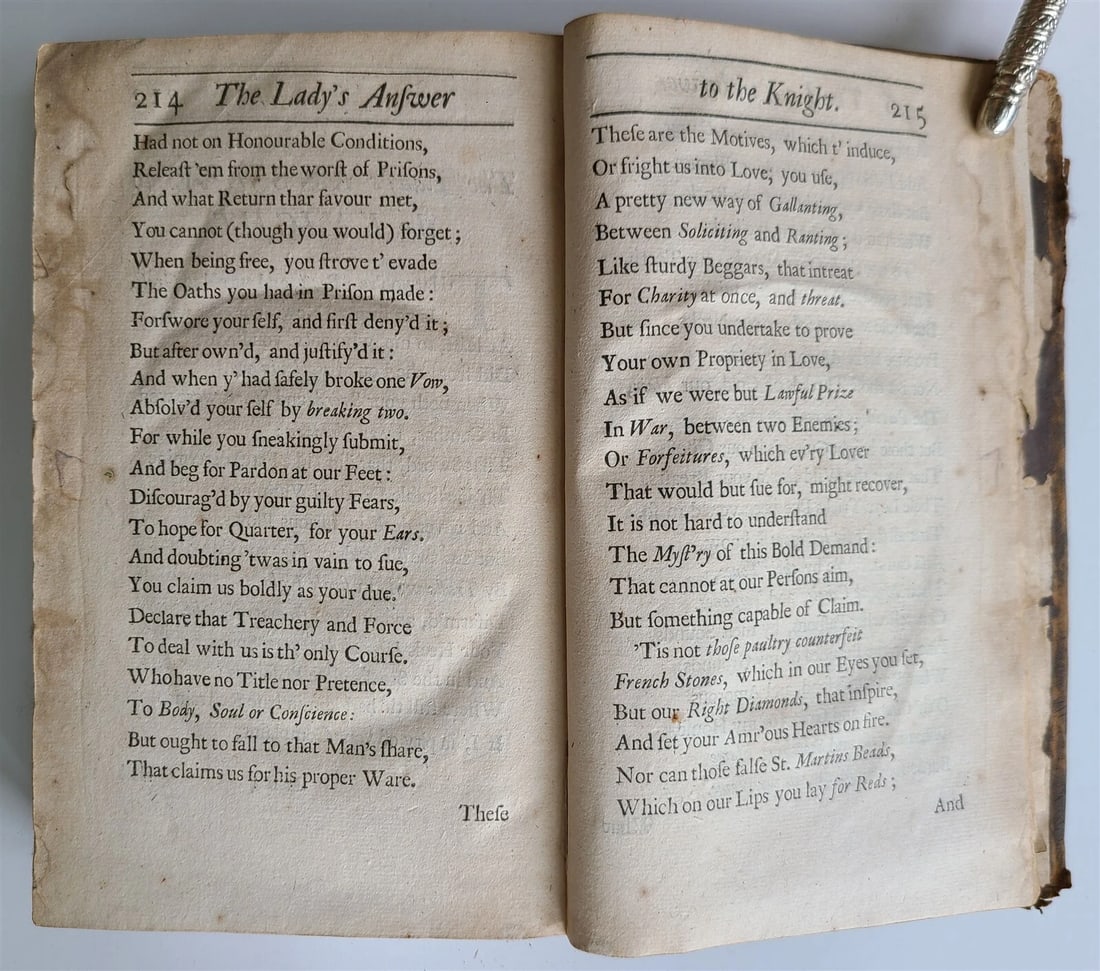 214 The Lady's Anſwer
Had not on Honourable Conditions,
Releaſt 'em from the worſt of Priſons,
And what Return thar favour met,
You cannot (though you would) forget;
When being free, you ſtrove t' evade
The Oaths you had in Priſon made:
Forſwore your ſelf, and firſt deny'd it;
But after own'd, and juſtify'd it:
And when y' had ſafely broke one Vow,
Abſolv'd your ſelf by breaking two.
For while you ſneakingly ſubmit,
And beg for Pardon at our Feet:
Diſcourag'd by your guilty Fears,
To hope for Quarter, for your Ears.
And doubting 'twas in vain to ſue,
You claim us boldly as your due.
Declare that Treachery and Force
To deal with us is th' only Courſe.
Who have no Title nor Pretence,
To Body, Soul or Conſcience:
But ought to fall to that Man's ſhare,
That claims us for his proper Ware.
Theſe
to the Knight. 215
Theſe are the Motives, which t' induce,
Or fright us into Love; you uſe,
A pretty new way of Gallanting,
Between Soliciting and Ranting;
Like ſturdy Beggars, that intreat
For Charity at once, and threat.
But ſince you undertake to prove
Your own Propriety in Love,
As if we were but Lawful Prize
In War, between two Enemies;
Or Forfeitures, which ev'ry Lover
That would but ſue for, might recover,
It is not hard to underſtand
The Myſt'ry of this Bold Demand:
That cannot at our Perſons aim,
But ſomething capable of Claim.
'Tis not thoſe paultry counterfeit
French Stones, which in our Eyes you ſet,
But our Right Diamonds, that inſpire,
And ſet your Amr'ous Hearts on fire.
Nor can thoſe falſe St. Martins Beads,
Which on our Lips you lay for Reds;
And